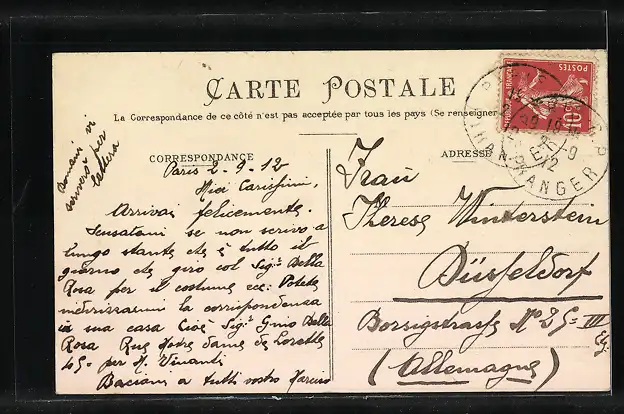 CARTE POSTALE
La Correspondance de ce côté n'est pas acceptée par tous les pays (Se renseigner
CORRESPONDANCE
ADRESSE
Domani vi
scriverò per
lettera
Paris 2-9-12
Miei Carissimi,
Arrivai felicemente.
Scusatemi se non scrivo a
lungo stante che è tutto il
giorno che giro col Sigr. Della
Rosa per il costume ecc: Potete
indirizzarmi la corrispondenza
in sua casa Cioè Sigr. Gino Della
Rosa Rue Notre dame de Lorette
45- per M.
Baciam a tutti vostro
Frau
Therese Winterstein
Düsseldorf
Borsigstrasse No 25 III
Etg.
(Allemagne)
POSTES
10
ETRANGER